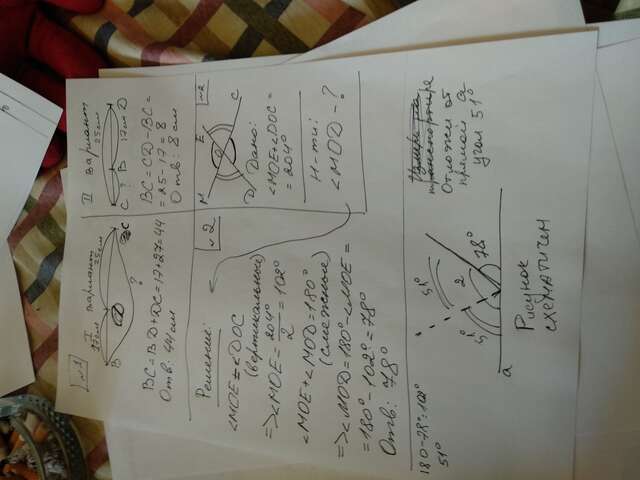 №1
I вариант
17см 25см
B C
?
BC = BD + DC = 17 + 27 = 44
Отв: 44 см
II вариант
25см
C ? B 17см D
BC = CD - BC =
= 25 - 17 = 8
Отв: 8 см
Решение:
∠MOE = ∠DOC
(вертикальные)
=> ∠MOE = 204°/2 = 102°
∠MOE + ∠MOD = 180°
(смежные)
=> ∠MOD = 180° - ∠MOE =
= 180° - 102° = 78°
Отв: 78°
№2
№2
M E
O
D C
Дано:
∠MOE + ∠DOC =
= 204°
Н-ти:
∠MOD - ?
180 - 78° = 102°
51°
51°
51° 2 78°
a
Рисунок
схематичен
Измерь на
транспортире
Отложи от
прямой a
угол 51°